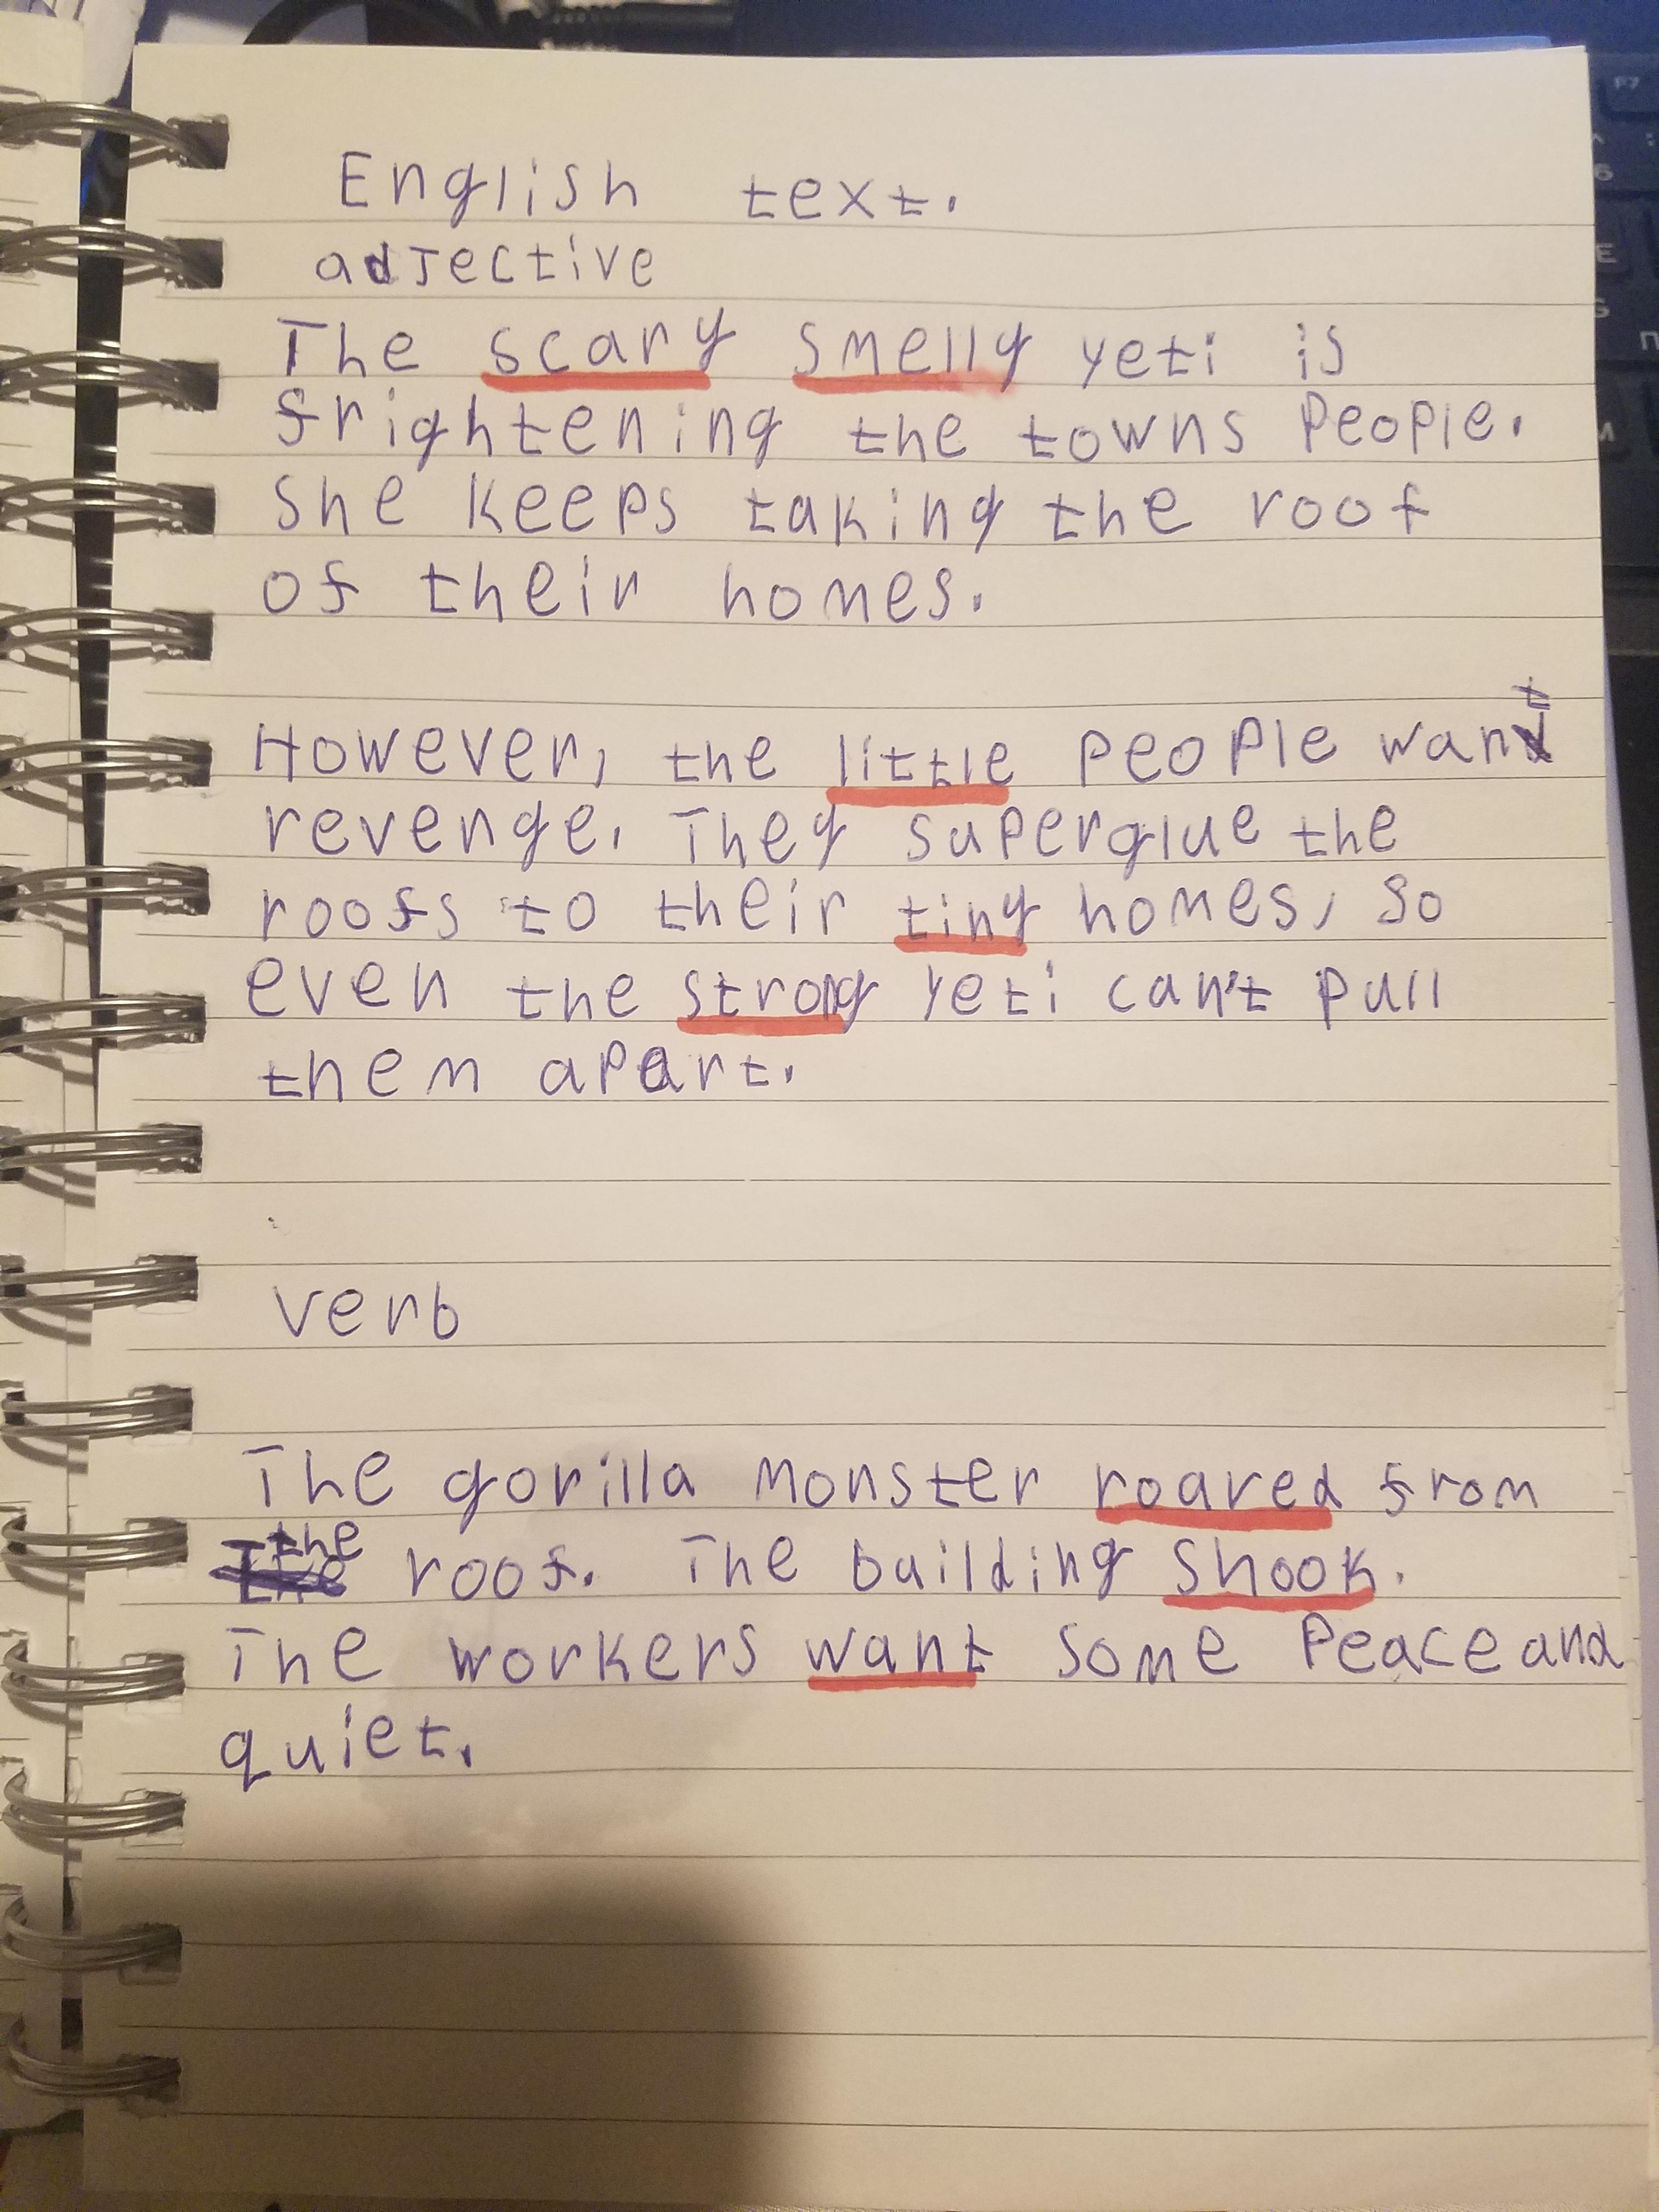 English text.
adjective
The scary smelly yeti is
frightening the towns people.
She keeps taking the roof
of their homes.
However, the little people want
revenge. They superglue the
roofs to their tiny homes, so
even the strong yeti can't pull
them apart.
verb
The gorilla monster roared from
the roof. The building shook.
The workers want some peace and
quiet.